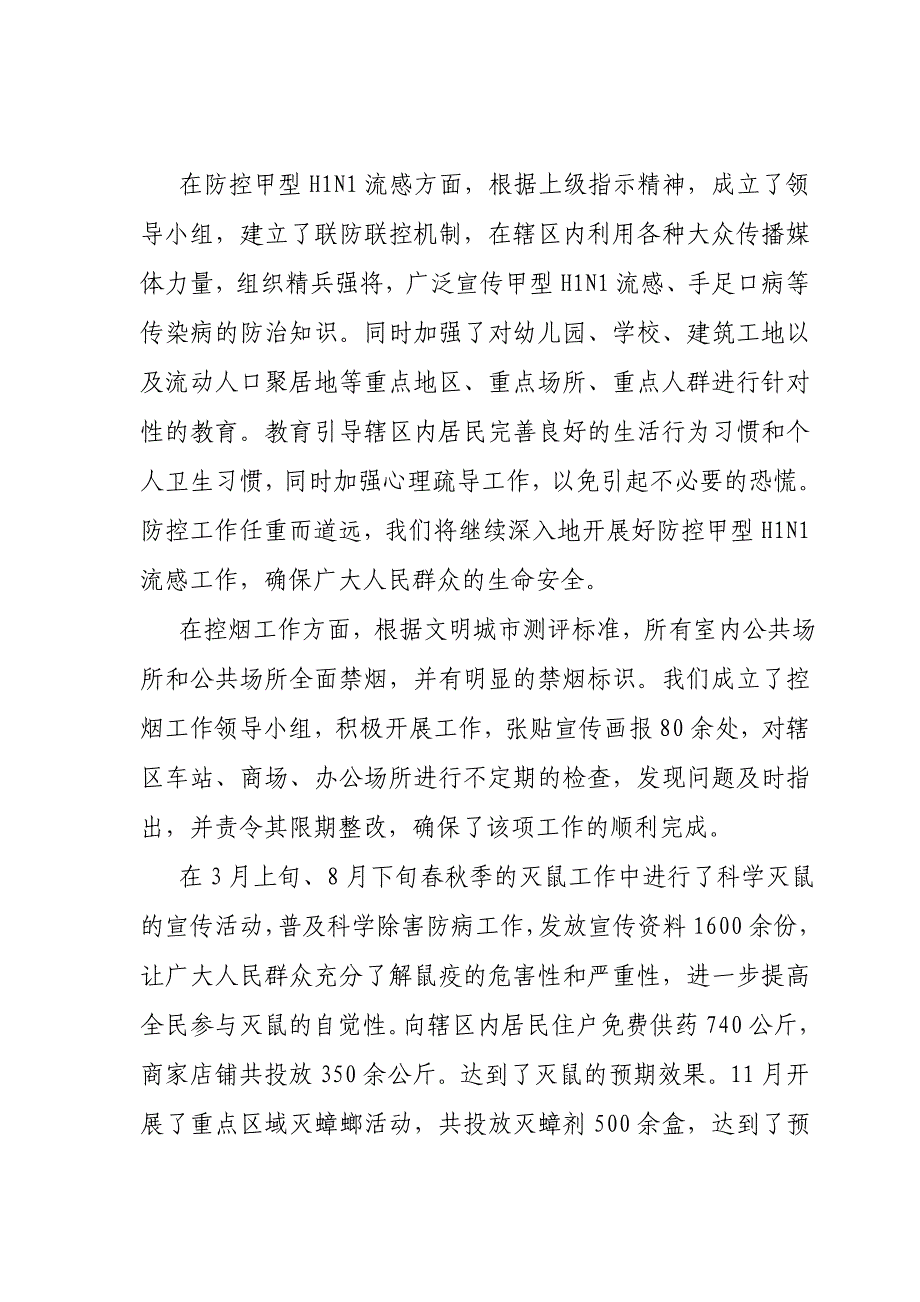 在防控甲型 H1N1 流感方面，根据上级指示精神，成立了领
导小组，建立了联防联控机制，在辖区内利用各种大众传播媒
体力量，组织精兵强将，广泛宣传甲型 H1N1 流感、手足口病等
传染病的防治知识。同时加强了对幼儿园、学校、建筑工地以
及流动人口聚居地等重点地区、重点场所、重点人群进行针对
性的教育。教育引导辖区内居民完善良好的生活行为习惯和个
人卫生习惯，同时加强心理疏导工作，以免引起不必要的恐慌。
防控工作任重而道远，我们将继续深入地开展好防控甲型 H1N1
流感工作，确保广大人民群众的生命安全。
在控烟工作方面，根据文明城市测评标准，所有室内公共场
所和公共场所全面禁烟，并有明显的禁烟标识。我们成立了控
烟工作领导小组，积极开展工作，张贴宣传画报 80 余处，对辖
区车站、商场、办公场所进行不定期的检查，发现问题及时指
出，并责令其限期整改，确保了该项工作的顺利完成。
在 3 月上旬、8 月下旬春秋季的灭鼠工作中进行了科学灭鼠
的宣传活动，普及科学除害防病工作，发放宣传资料 1600 余份，
让广大人民群众充分了解鼠疫的危害性和严重性，进一步提高
全民参与灭鼠的自觉性。向辖区内居民住户免费供药 740 公斤，
商家店铺共投放 350 余公斤。达到了灭鼠的预期效果。11 月开
展了重点区域灭蟑螂活动，共投放灭蟑剂 500 余盒，达到了预